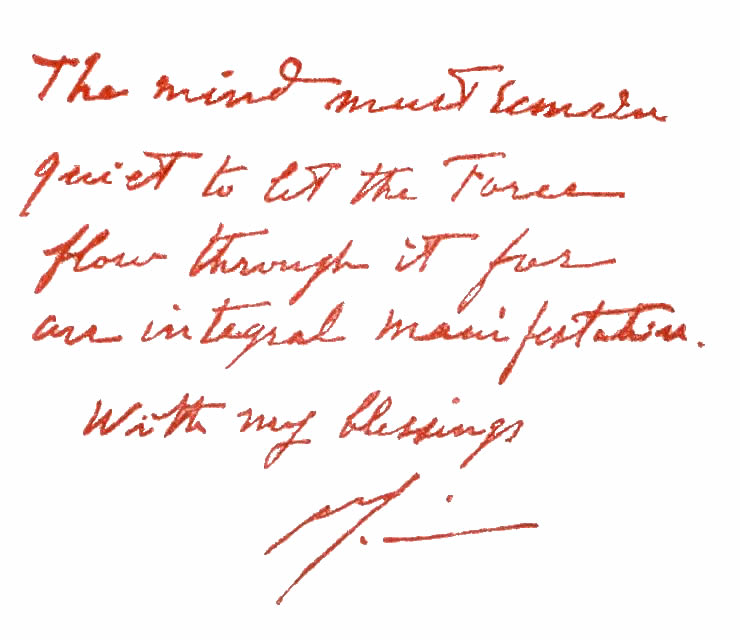 The mind must remain
quiet to let the Force
flow through it for
an integral manifestation.
With my blessings